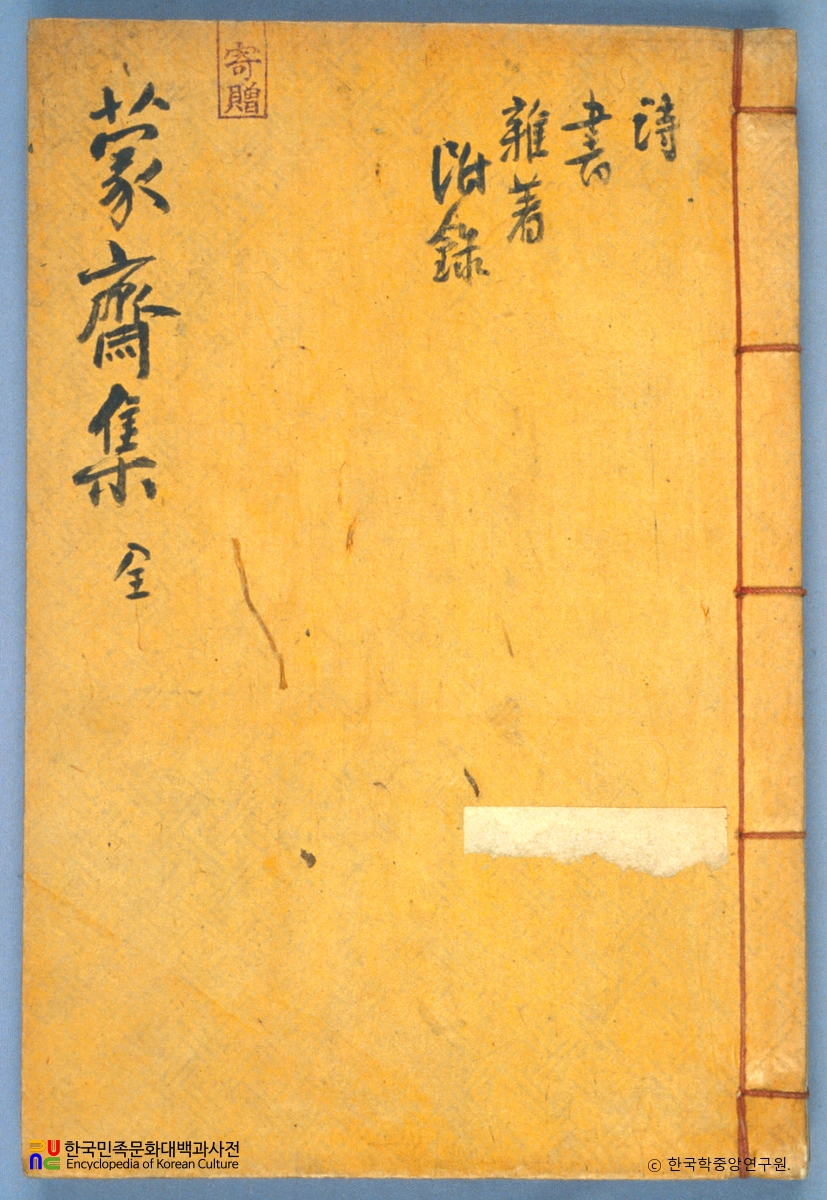 詩
書
雜著
附錄
寄贈
蒙齋集 全
한국민족문화대백과사전
Encyclopedia of Korean Culture
© 한국학중앙연구원.